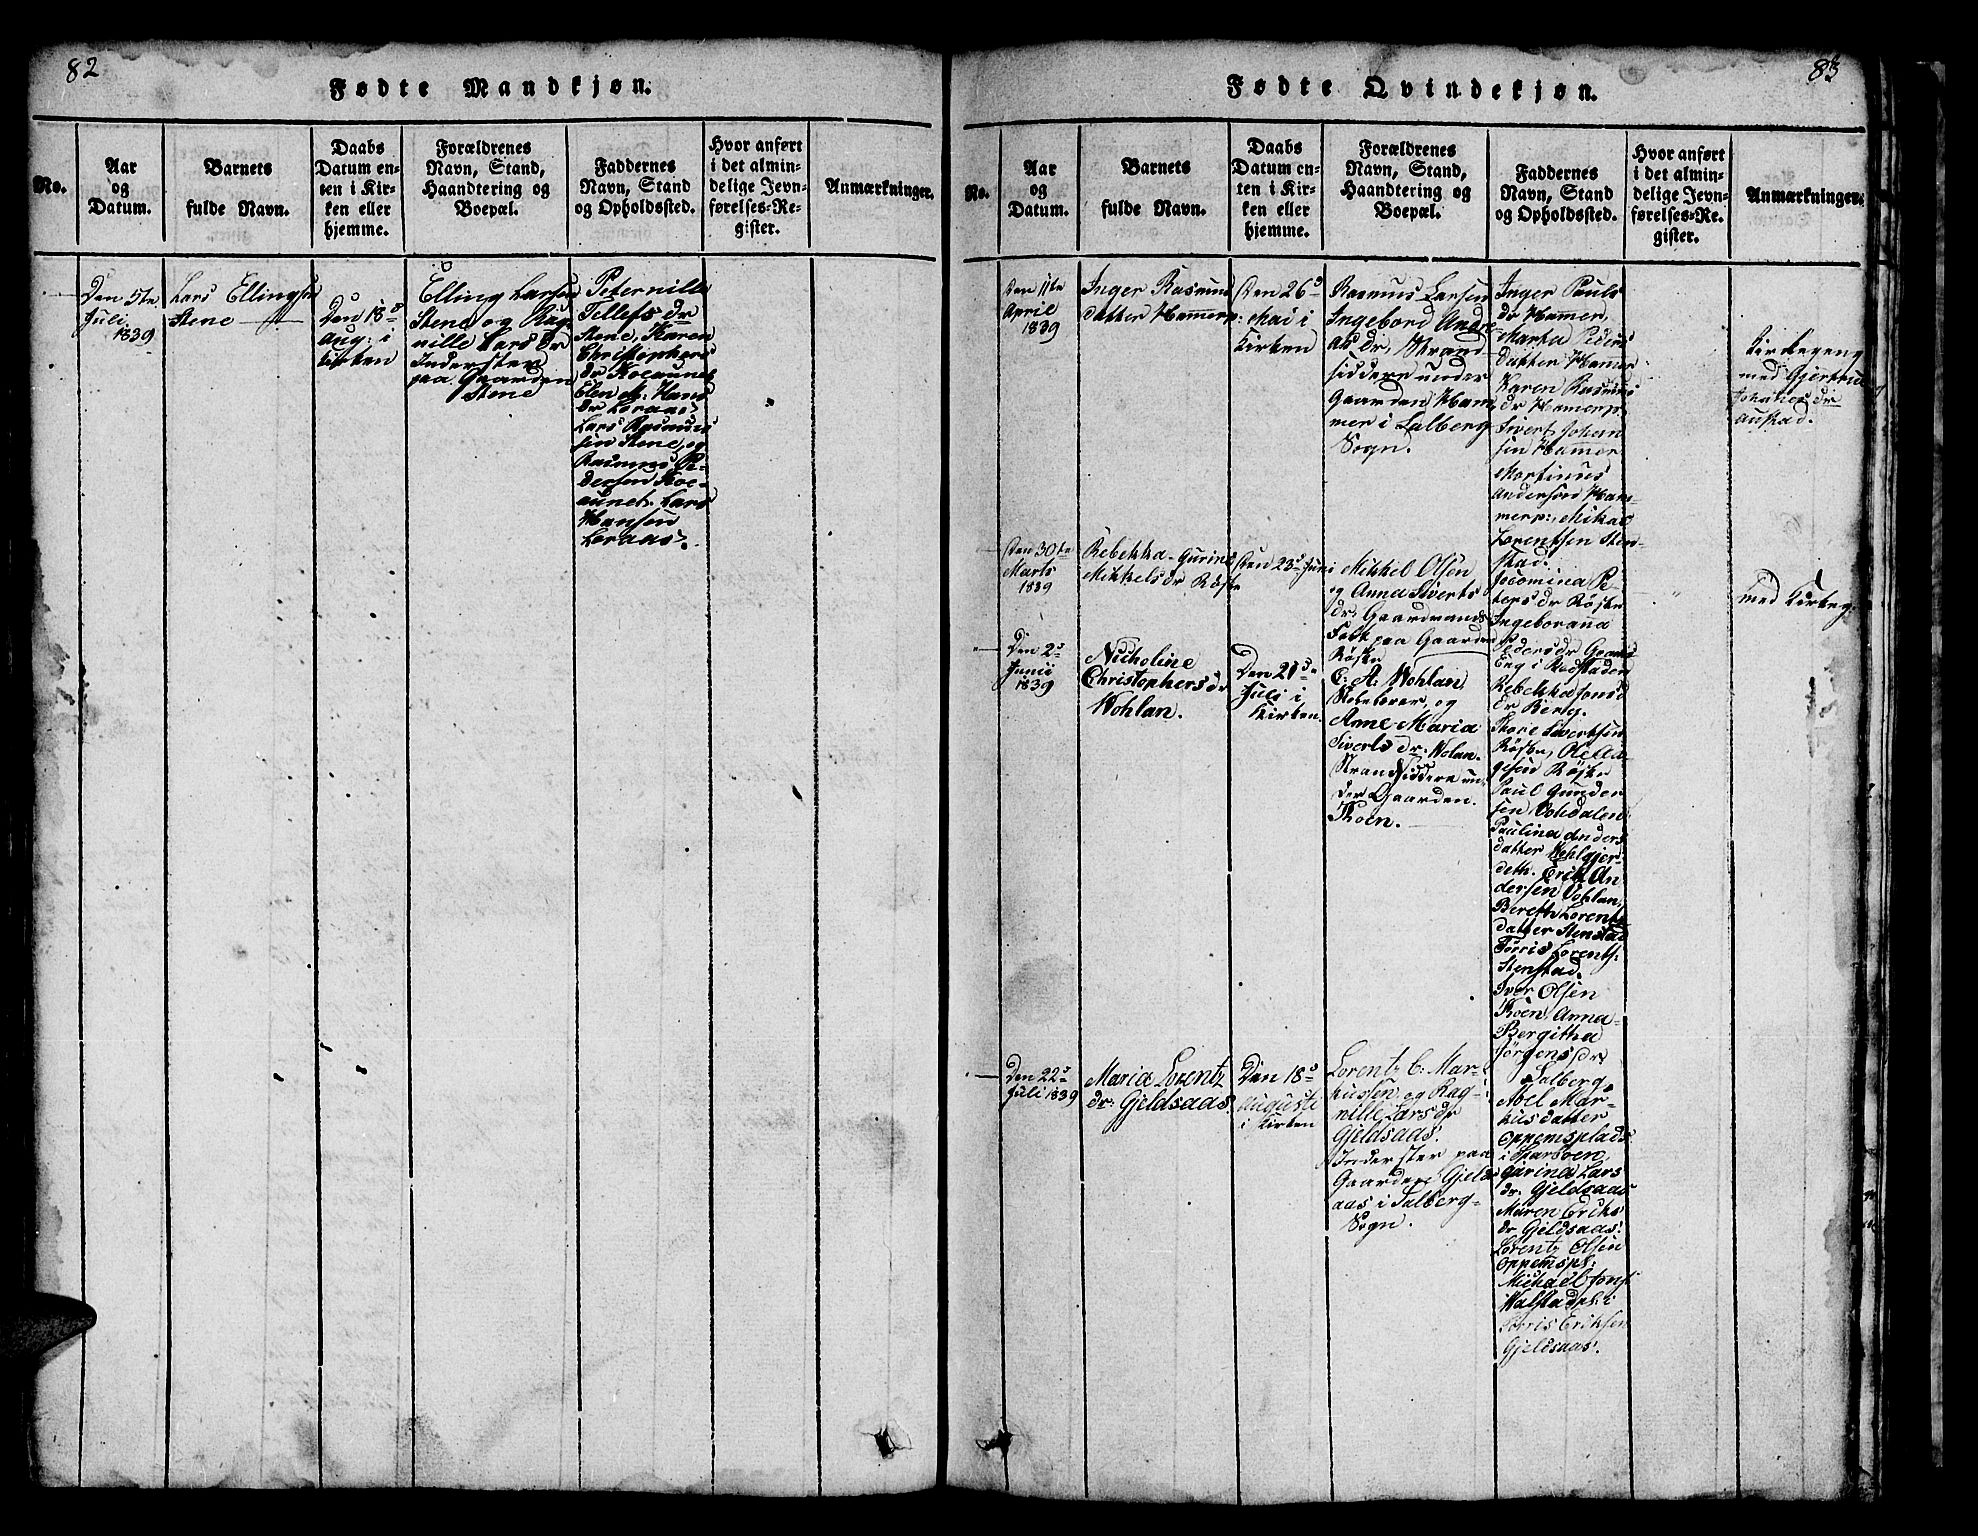 82
Fødte Mandkjøn.
No.
Aar
og
Datum.
Barnets
fulde Navn.
Daabs
Datum en-
ten i Kir-
ken eller
hjemme.
Forældrenes
Navn, Stand,
Haandtering og
Boepæl.
Faddernes
Navn, Stand
og Opholdssted.
Hvor anført
i det almin-
delige Jevn-
førelses-Re-
gister.
Anmærkninger.
Den 5te
Juli
1839
Lars Ellingsen
Stene
Den 18de
Aug: i
Kirken
Elling Larsen
Stene og Rag-
nille Lars Dr
Inderster
paa Gaarden
Stene
Peternille
Tellefs dr
Stene, Karen
Christophers
dr
Elen M: Hans
dr Loraas
Lars Rasmus
sen Stene, og
Rasmus Pe-
dersen
Lars
Hansen
Loraas.
83
Fødte Qvindekjøn.
No.
Aar
og
Datum.
Barnets
fulde Navn.
Daabs
Datum en-
ten i Kir-
ken eller
hjemme.
Forældrenes
Navn, Stand,
Haandtering og
Boepæl.
Faddernes
Navn, Stand
og Opholdssted.
Hvor anført
i det almin-
delige Jevn-
førelses-Re-
gister.
Anmærkninger.
Den 11te
April
1839
Inger Rasmus
datter Hammerp:
Den 26d
Mai i
Kirken
Rasmus Larsen
Ingebord Andre-
as dr, Strand-
siddere under
Gaarden Ham-
mer i Salberg
Sogn.
Inger Pauls
dr Hamer,
Marta Peders
datter Hamer
Karen Rasmus
dr Hamerp.
Sivert Johan
sen Hamer
Martinus
Andersen Ham-
merp:, Mikal
Lorentsen Sten-
stad.
Kirkegang
med Gjertrud
Johanes dr
Austad.
Den 30te
Marts
1839
Rebekka Gurine
Mikkels dr Røske
Den 23d Juni
Mikkel Olsen
og Anna Siverts
dr: Gaardmands
Folk paa Gaarden
Røske
Peters dr Røske
Ingeborana
Peders dr
Eng i
Rebekka Jons
dr Berg.
Tore Sivertsen
Røske, Ole
Røske
med Kirkeg:
Den 2d
Junii
1839
Nicholine
Christophers dr
Wohlan.
Den 21de
Juli i
Kirken.
C. A. Wohlan,
Skolelærer, og
Anne Maria
Siverts dr: Wolan.
Strandsiddere un-
der Gaarden.
Koen.
Paul Gunder
sen Vohdalen
Paulina Anders
datter Wehlgjer-
deth. Erik An
dersen Vohlan,
Bereth Lorents
datter Stenstad
Torris Lorents:
Stenstad.
Iver Olsen
Koen, Anna
Bergitha
Jørgens dr
Salberg,
Den 22d
Juli 1839
Maria Lorentz
dr: Gjeldsaas.
Den 18d
Augusti
i Kirken
Lorentz C: Mar-
kussen og Rag-
nille Lars dr
Gjeldsaas.
Inderster paa
Gaarden Gjelds
aas i Salberg-
Sogn.
Abel Mar-
kusdatter
Oppemsplads
i Sparboen,
Gurina Lars
dr: Gjeldsaas
Maren Eriks
dr Gjeldsaas:
Lorentz Olsen
Oppemspl:
Michael Jons:
Walstadpl: i
Torris Eriksen
Gjeldsaas.